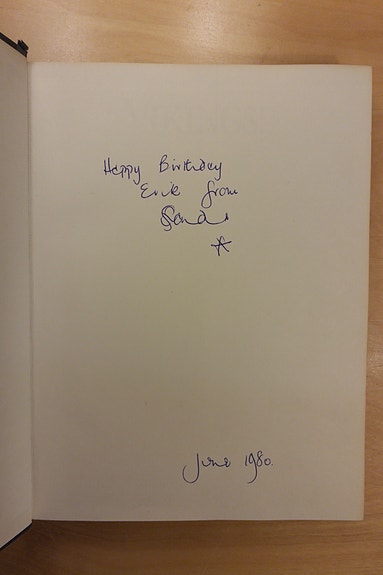 Happy Birthday
Erik from
June 1980.